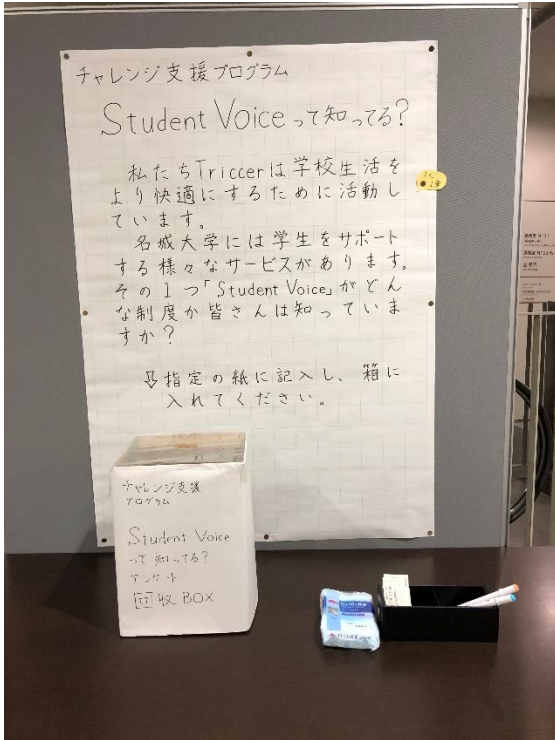 チャレンジ支援プログラム
Student Voiceって知ってる?
私たちTriccerは学校生活を
より快適にするために活動し
ています。
名城大学には学生をサポート
する様々なサービスがあります。
その1つ「Student Voice」がどん
な制度か皆さんは知っていま
すか?
⇩指定の紙に記入し、箱に
入れてください。
チャレンジ支援
プログラム
Student Voice
って知ってる?
アンケート
回収BOX